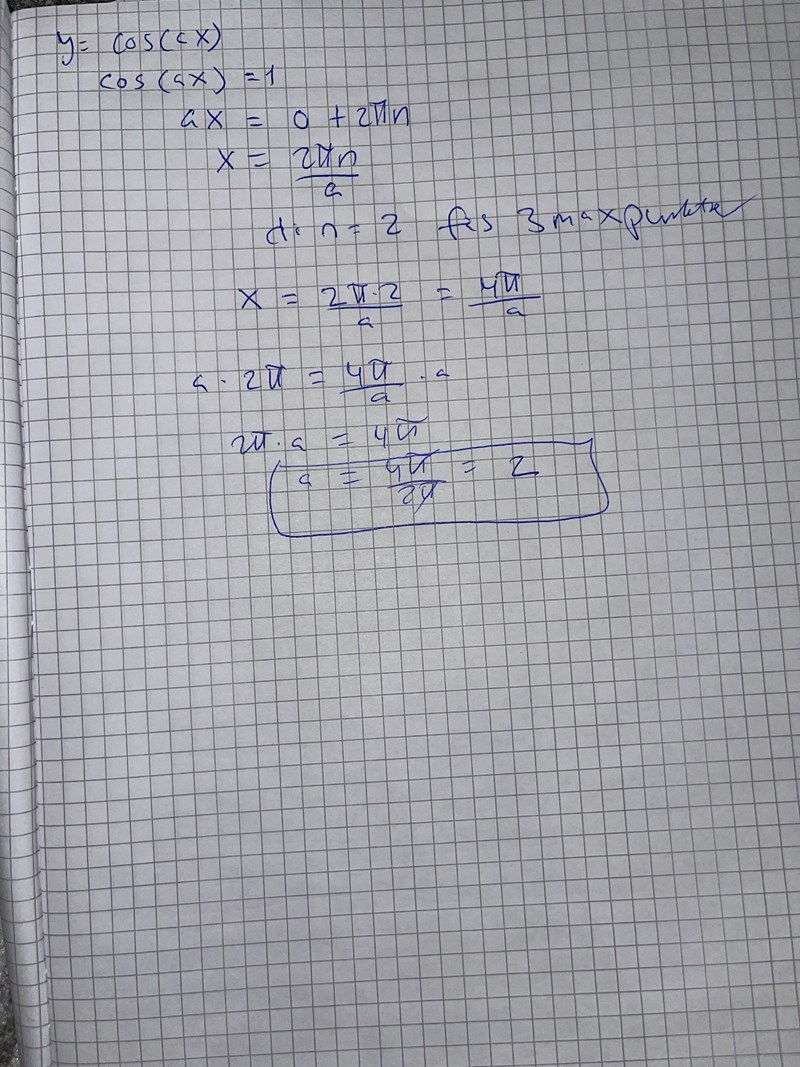 y = cos(ax)
cos(ax) = 1
ax = 0 + 2πn
x = 2πn/a
då n = 2 fås 3 maxpunkter
x = 2π·2/a = 4π/a
a · 2π = 4π/a · a
2π·a = 4π
a = 4π/2π = 2